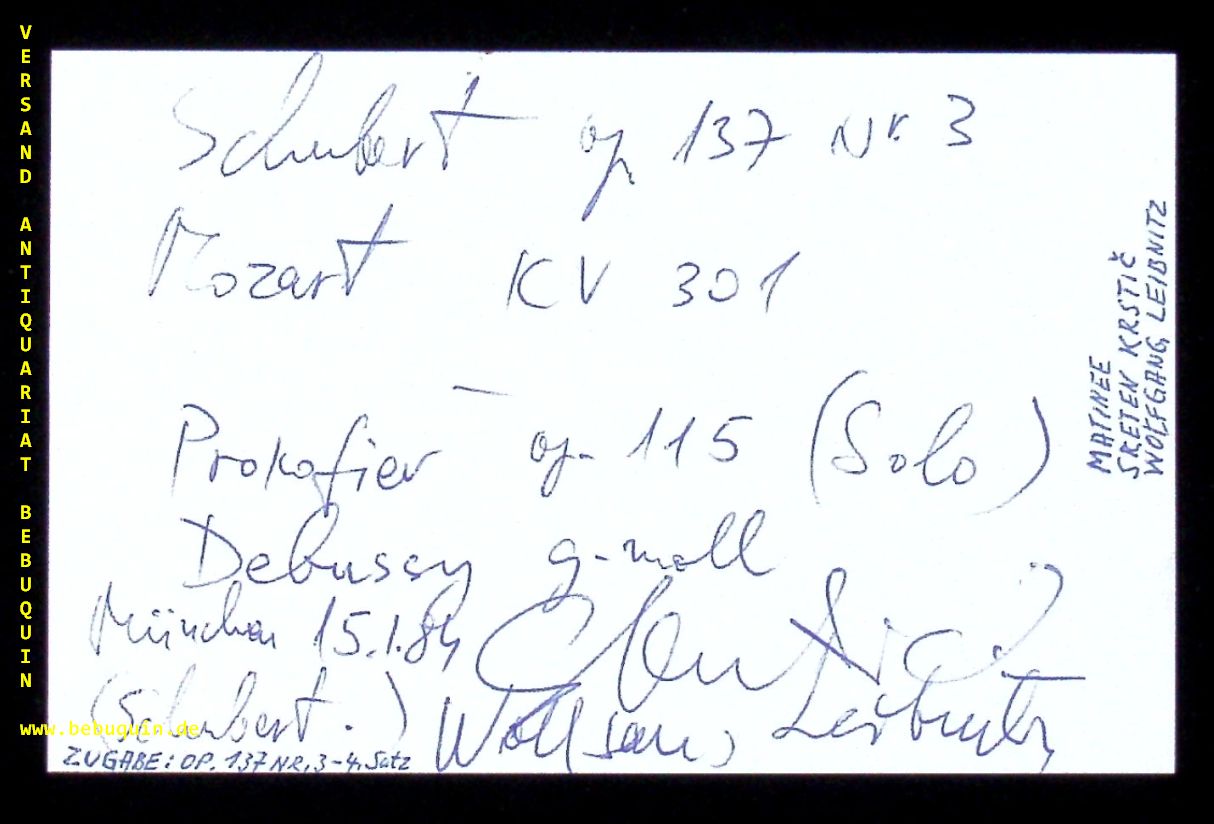 VERSAND ANTIQUARIAT BEBUQUIN
Schubert op 137 Nr. 3
Mozart KV 301
—
Prokofiev op. 115 (Solo)
Debussy g-moll
München 15.1.84
(Schubert . )
Wolfgang Leibnitz
www.bebuquin.de
ZUGABE: OP. 137 NR. 3 - 4. Satz
MATINEE
SRETEN KRSTIČ
WOLFGANG LEIBNITZ